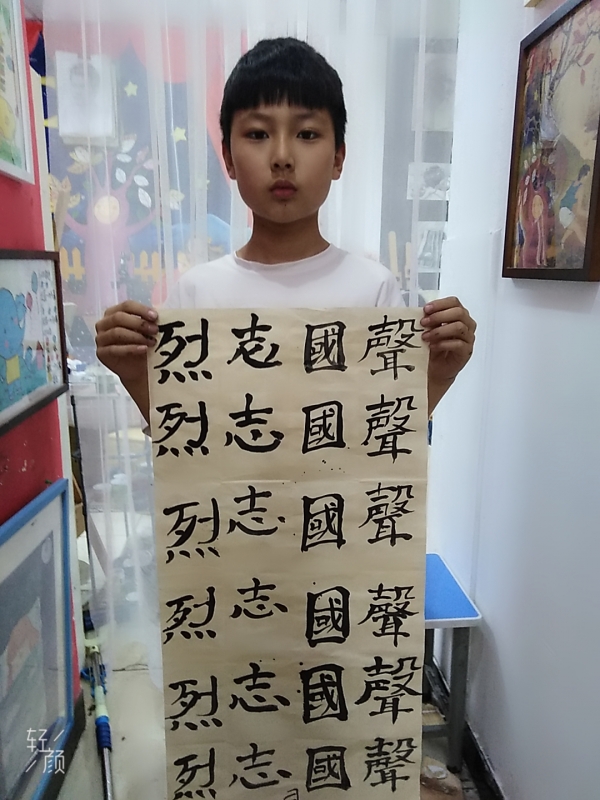 聲聲聲聲聲聲
國國國國國國
志志志志志志
烈烈烈烈烈烈
轻颜